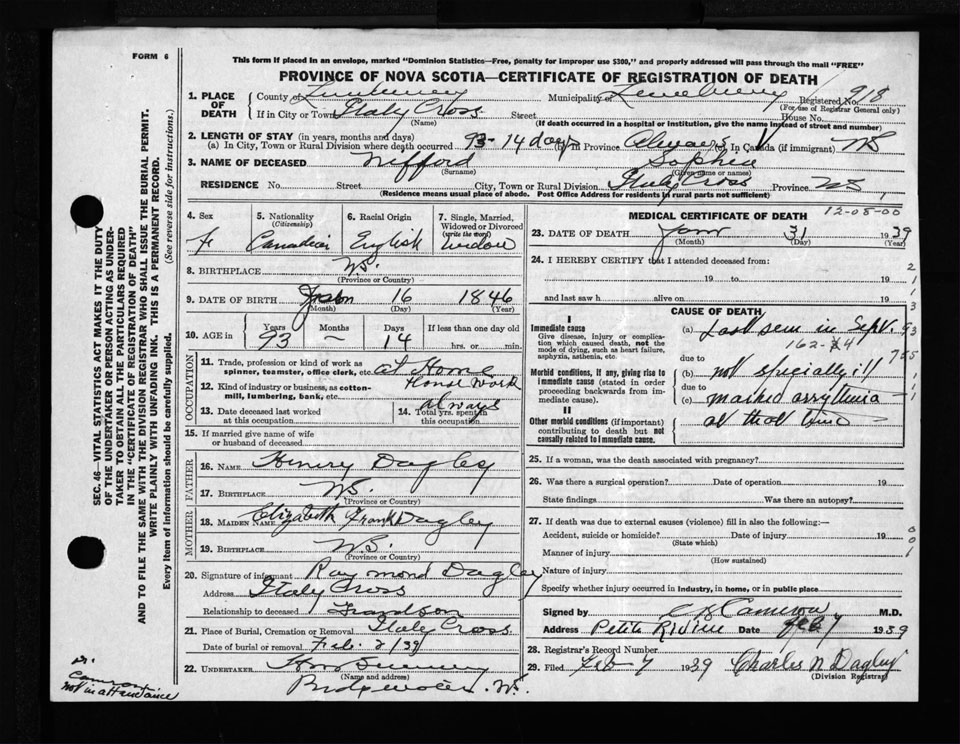 FORM 6
This form if placed in an envelope, marked "Dominion Statistics—Free, penalty for improper use $300," and properly addressed will pass through the mail "FREE"
PROVINCE OF NOVA SCOTIA—CERTIFICATE OF REGISTRATION OF DEATH
1. PLACE OF DEATH County of Lunenburg Municipality of Lunenburg Registered No. 918
(For use of Registrar General only)
If in City or Town Italy Cross Street House No.
(Name) (If death occurred in a hospital or institution, give the name instead of street and number)
2. LENGTH OF STAY (in years, months and days)
(a) In City, Town or Rural Division where death occurred 93 - 14 days In Province Always In Canada (if immigrant) NS
3. NAME OF DECEASED Wifford Sophia
(Surname) (Given name or names)
RESIDENCE No. Street City, Town or Rural Division Italy Cross Province NS
(Residence means usual place of abode. Post Office Address for residents in rural parts not sufficient)
4. Sex 5. Nationality (Citizenship) 6. Racial Origin 7. Single, Married, Widowed or Divorced (write the word)
fe Canadian English Widow
8. BIRTHPLACE N.S.
(Province or Country)
9. DATE OF BIRTH 16 1846
(Month) (Day) (Year)
10. AGE in Years Months Days If less than one day old
93 ~ 14 hrs. or min.
OCCUPATION
11. Trade, profession or kind of work as spinner, teamster, office clerk, etc. at Home
12. Kind of industry or business, as cotton-mill, lumbering, bank, etc. House Work
13. Date deceased last worked at this occupation 14. Total yrs. spent in this occupation always
15. If married give name of wife or husband of deceased
FATHER
16. NAME Henry Dagley
17. BIRTHPLACE N.S.
(Province or Country)
MOTHER
18. MAIDEN NAME Elizabeth Frank Dagley
19. BIRTHPLACE N.S.
(Province or Country)
20. Signature of informant Raymond Dagley
Address Italy Cross
Relationship to deceased Grandson
21. Place of Burial, Cremation or Removal Italy Cross
Date of burial or removal Feb. 2/39
22. UNDERTAKER
(Name and address)
Bridgewater N.S.
12-08-00
MEDICAL CERTIFICATE OF DEATH
23. DATE OF DEATH Jan 31 1939
(Month) (Day) (Year)
24. I HEREBY CERTIFY that I attended deceased from:
19 to 19
and last saw h alive on 19
CAUSE OF DEATH
I
Immediate cause
Give disease, injury or complication which caused death, not the mode of dying, such as heart failure, asphyxia, asthenia, etc
Morbid conditions, if any, giving rise to immediate cause (stated in order proceeding backwards from immediate cause).
II
Other morbid conditions (if important) contributing to death but not causally related to immediate cause.
(a) Last seen in Sept.
162-
due to
(b) not specially ill
due to
(c) marked arrythmia
at that time
25. If a woman, was the death associated with pregnancy?
26. Was there a surgical operation? Date of operation 19
State findings Was there an autopsy?
27. If death was due to external causes (violence) fill in also the following:—
Accident, suicide or homicide? Date of injury 19
(State which)
Manner of injury
(How sustained)
Nature of injury
Specify whether injury occurred in Industry, in home, or in public place
Signed by Cameron M.D.
Address Petite Riviere Date Feb 7 1939
28. Registrar's Record Number
29. Filed Feb 7 1939 Charles N Dagley
(Division Registrar)
SEC. 46—VITAL STATISTICS ACT MAKES IT THE DUTY
OF THE UNDERTAKER OR PERSON ACTING AS UNDER-
TAKER TO OBTAIN ALL THE PARTICULARS REQUIRED
IN THE "CERTIFICATE OF REGISTRATION OF DEATH"
AND TO FILE THE SAME WITH THE DIVISION REGISTRAR WHO SHALL ISSUE THE BURIAL PERMIT.
WRITE PLAINLY WITH UNFADING INK. THIS IS A PERMANENT RECORD.
Every item of information should be carefully supplied. (See reverse side for instructions.)
Dr.
Cameron
not in attendance